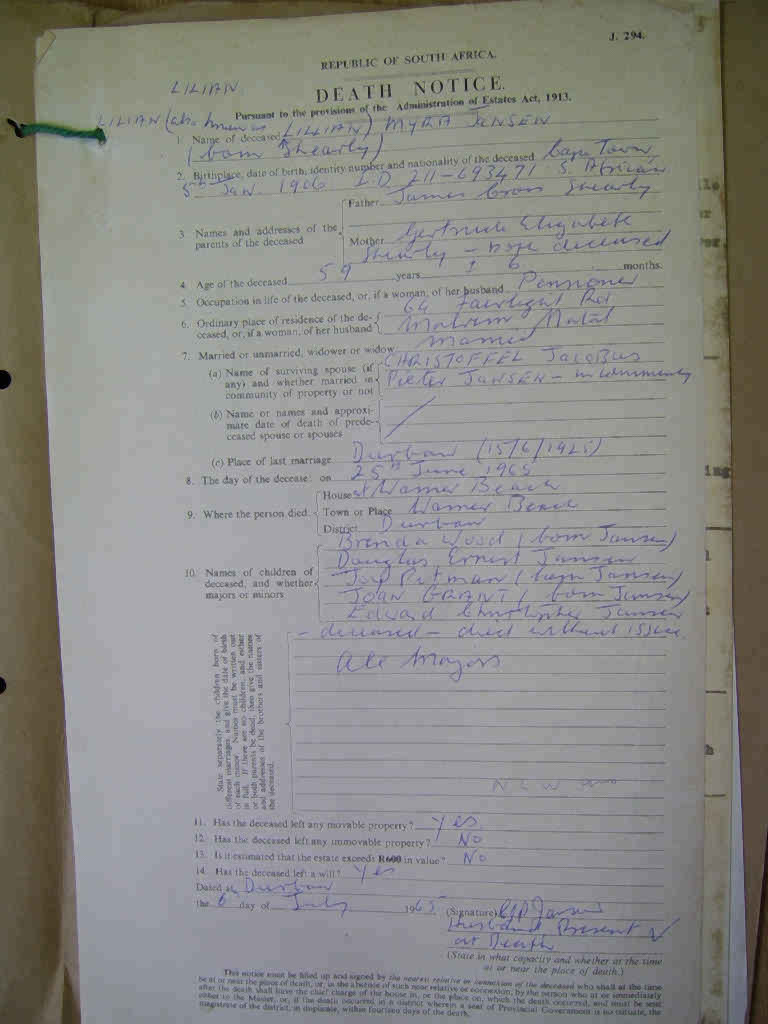 J. 294.
REPUBLIC OF SOUTH AFRICA.
LILIAN
DEATH NOTICE.
Pursuant to the provisions of the Administration of Estates Act, 1913.
LILIAN (also known as LILLIAN) MYRA JANSEN
1. Name of deceased
(born Shearly)
2. Birthplace, date of birth, identity number and nationality of the deceased Cape Town,
5th Jan. 1906 I.D 211-693471. S. African
Father James Shearly
3. Names and addresses of the parents of the deceased
Mother Gertrude Elizabeth
Shearly - both deceased
4. Age of the deceased 59 years 6 months.
5. Occupation in life of the deceased, or, if a woman, of her husband Pensioner
64 Rd
6. Ordinary place of residence of the deceased, or, if a woman, of her husband Malvern Natal
7. Married or unmarried, widower or widow Married
(a) Name of surviving spouse (if any) and whether married in community of property or not
CHRISTOFFEL JACOBUS
Pieter JANSEN - in Community
(b) Name or names and approximate date of death of predeceased spouse or spouses
(c) Place of last marriage Durban (15/6/1925)
8. The day of the decease: on 25th June 1965
House at Warner Beach
9. Where the person died. Town or Place Warner Beach
District Durban
Brenda Wood (born Jansen)
Douglas Ernest Jansen
10. Names of children of deceased, and whether majors or minors
Joy Putman (born Jansen)
JOAN GRANT (born Jansen)
Edward Christopher Jansen
- deceased - died without issue.
All Majors
State separately the children born of different marriages and give the date of birth of each minor. Names must be written out in full. If there are no children, and either or both parents be dead, then give the names and addresses of the brothers and sisters of the deceased.
11. Has the deceased left any movable property? Yes
12. Has the deceased left any immovable property? No
13. Is it estimated that the estate exceeds R600 in value? No
14. Has the deceased left a will? Yes
Dated at Durban
the 6 day of July 1965 (Signature) CJP Jansen
Husband Present
at Death
(State in what capacity and whether at the time as or near the place of death.)
This notice must be filled up and signed by the nearest relative or connection of the deceased who shall at the time
be at or near the place of death, or, in the absence of such near relative or connexion, by the person who at or immediately
after the death shall have the chief charge of the house in, or the place on, which the death occurred, and must be sent
either to the Master, or, if the death occurred in a district wherein a seat of Provincial Government is no situate, the
magistrate of the district, in duplicate, within fourteen days of the death.